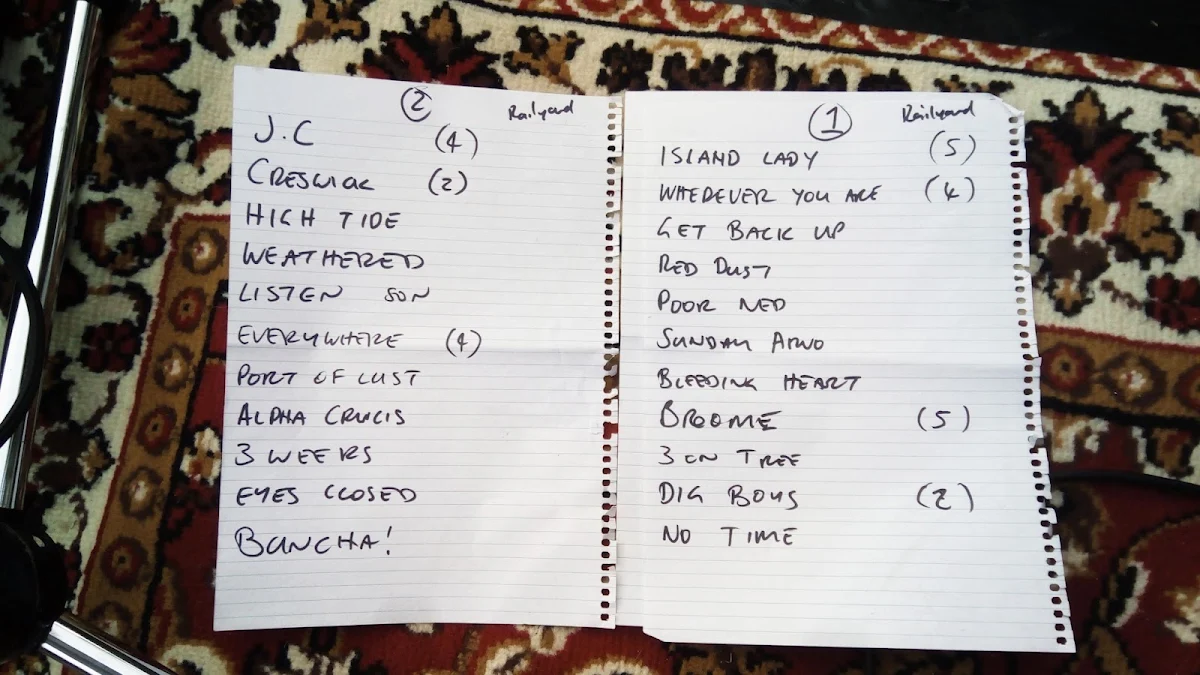 2 Railyard
J.C (4)
CRESWICK (2)
HIGH TIDE
WEATHERED
LISTEN SON
EVERYWHERE (4)
PORT OF LUST
ALPHA CRUCIS
3 WEEKS
EYES CLOSED
BUNCHA!
1 Railyard
ISLAND LADY (5)
WHEREVER YOU ARE (4)
GET BACK UP
RED DUST
POOR NED
SUNDAY ARVO
BLEEDING HEART
BROOME (5)
3 ON TREE
DIG BOYS (2)
NO TIME